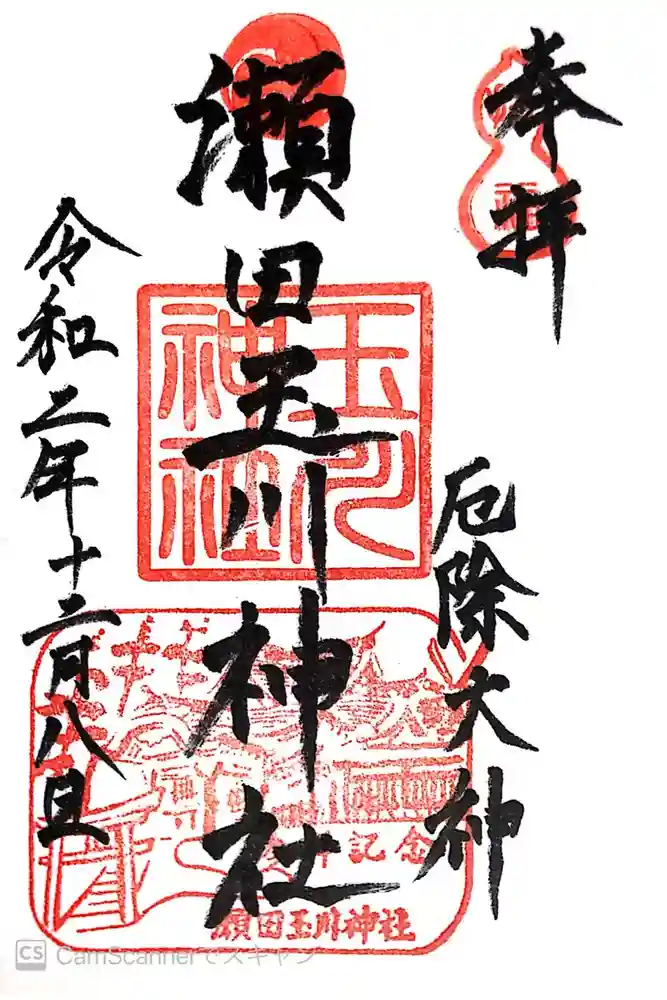 奉拝
厄除大神
瀬田玉川神社
令和二年十二月八日
玉川
神社
記念
瀬田玉川神社
CS CamScannerでスキャン